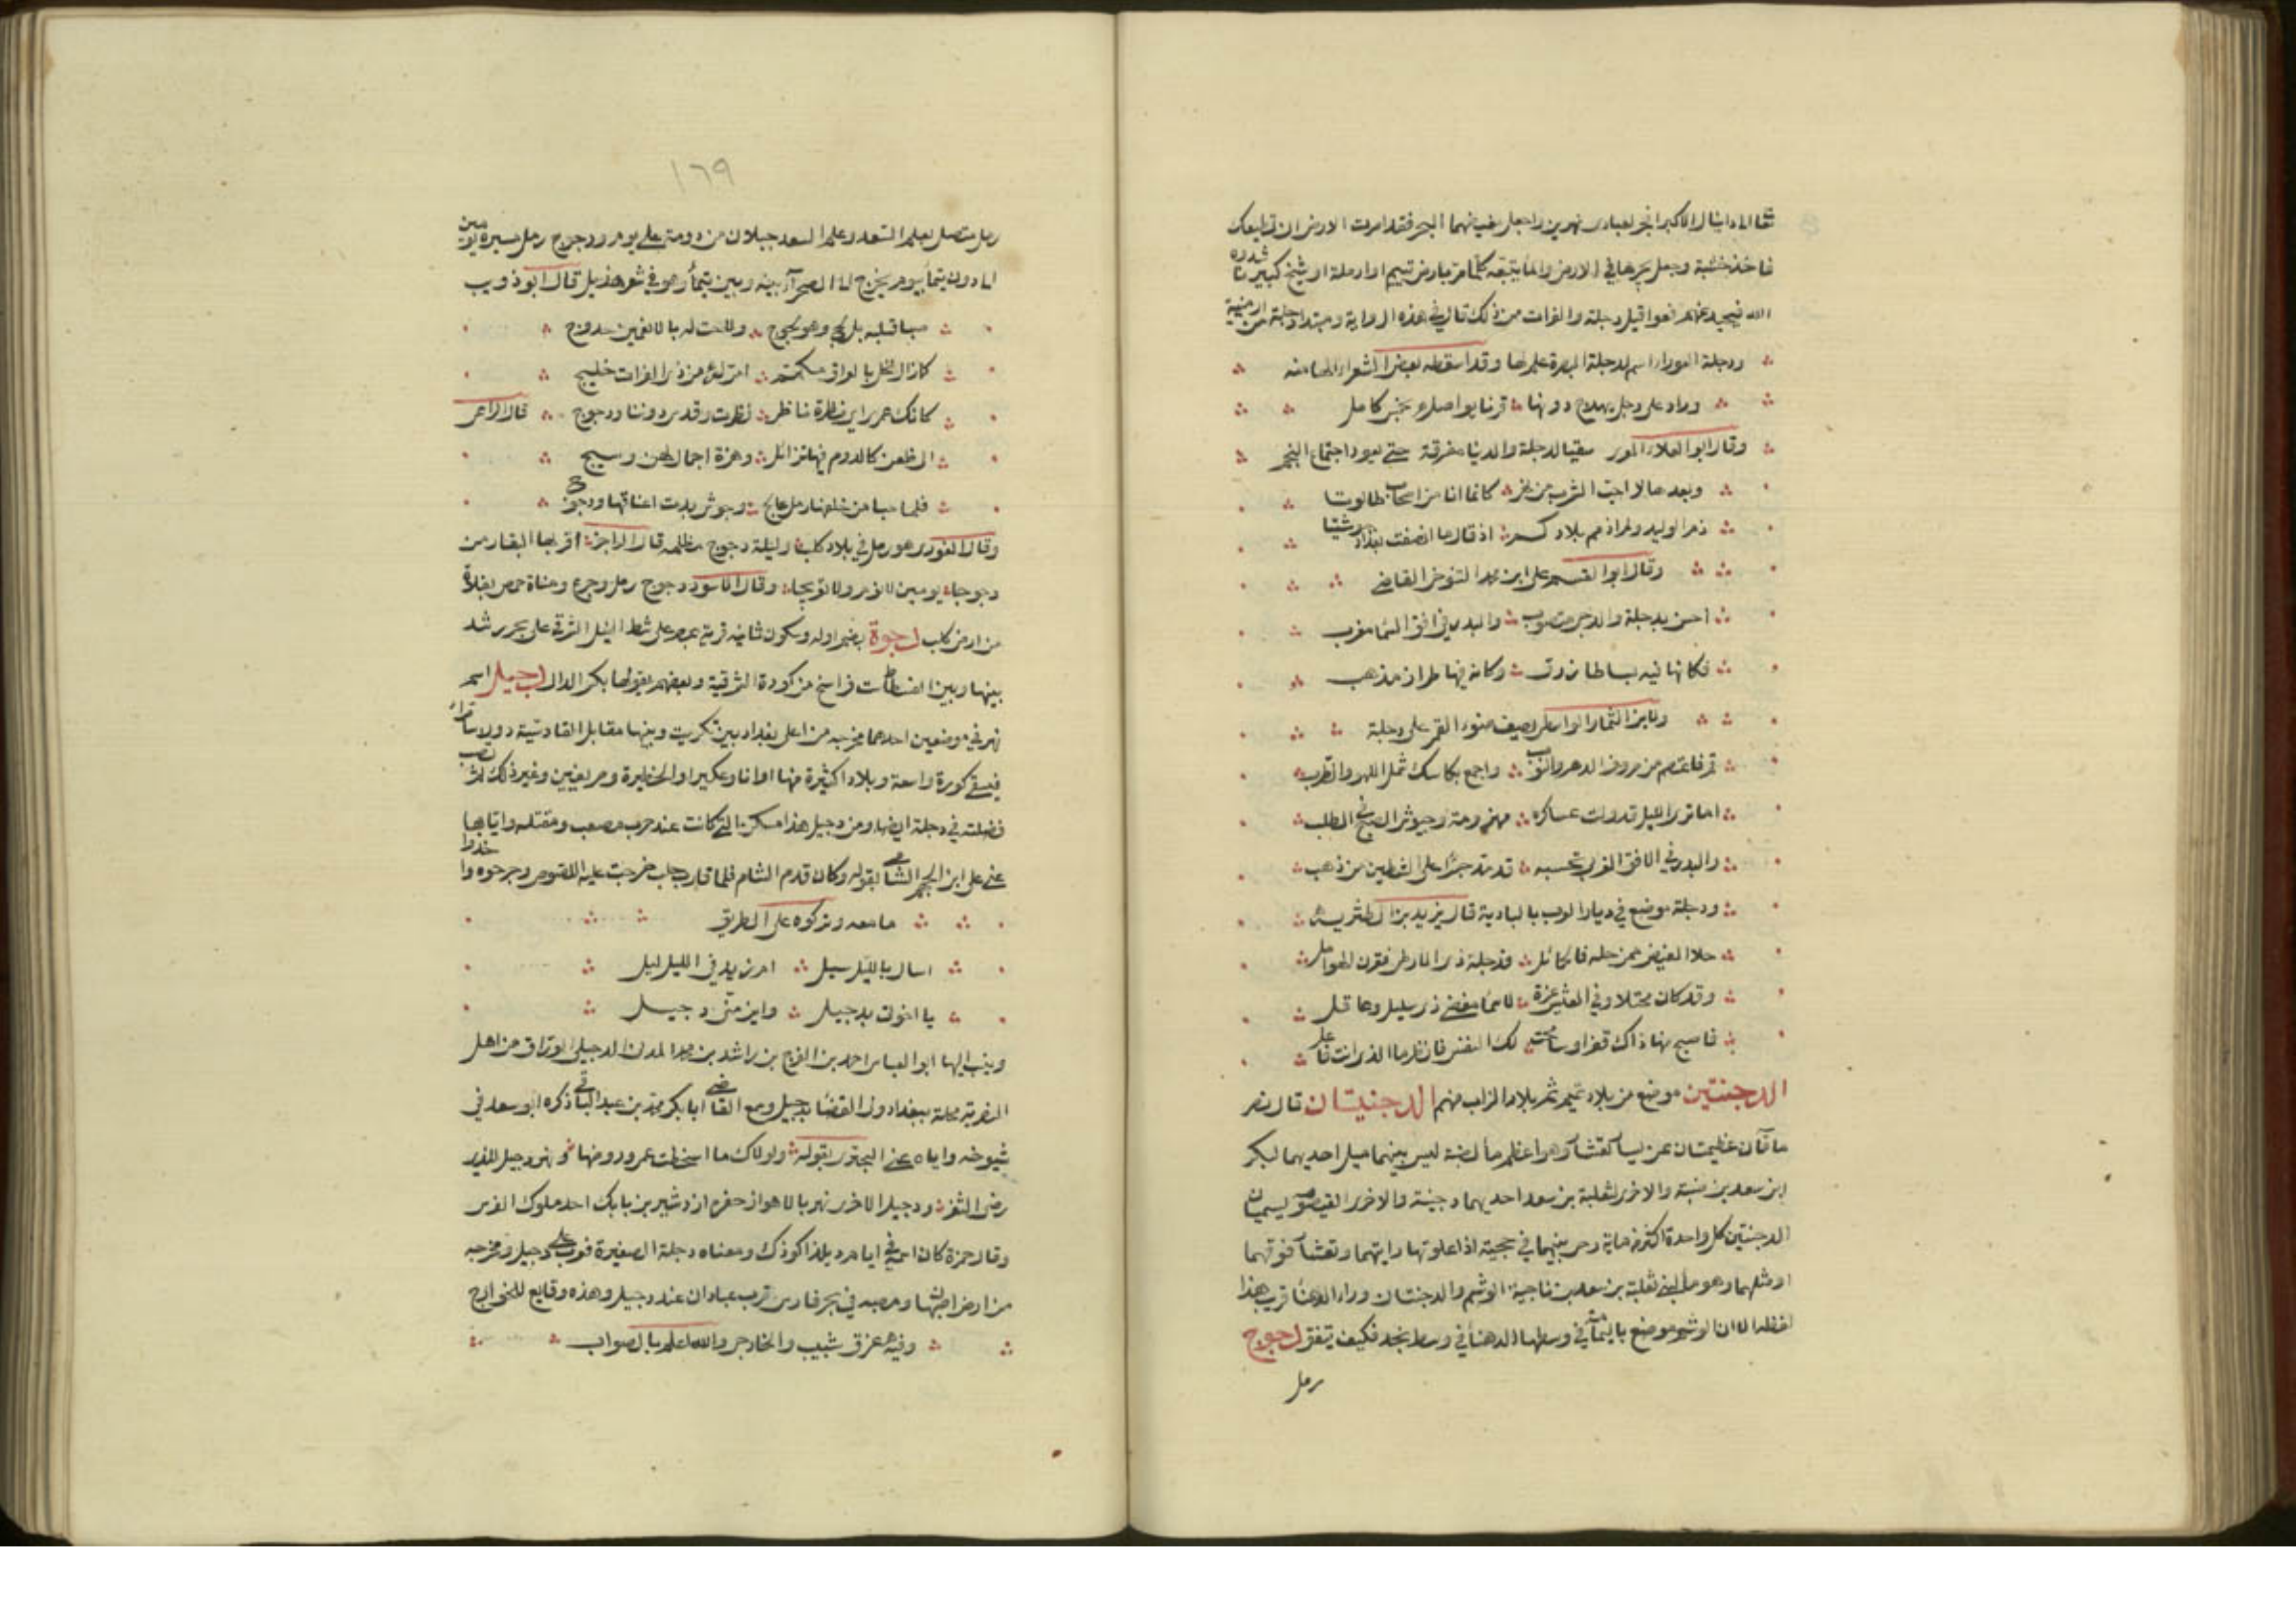 تعالى الى دانيال الاكبر احفر لعبادى نهرين واجعل مغيضهما البحر فقد امرت الارض ان تطيعك
فاخذ خشبة وجعل يجرها في الارض والماء يتبعه كلما مر بارض يتيم او ارملة او شيخ كبير ناشدوه
الله فيحيد عنهم فعواقيل دجلة والفرات من ذلك قال في هذه الرواية ومبتدا دجلة من ارمنية
ودجلة العوراء اسم لدجلة البصرة علم لها وقد اسقط بعض الشعراء الها منه
وقال ابو العلاء المعرى سقيا لدجلة والدنيا مفرقة حتى يعود اجتماع النجم
وبعدها لا احب الشرب من نهر كانما انا من اصحاب طالوتا
ذم الوليد ولم اذمم بلادكم اذ قال ما انصفت بغداد حوشيتا
وقال ابو القسم على ابن محمد التنوخى القاضى
احسن بدجلة والدجى متصوب والبدر في افق السما مغرب
فكانها فيه بساط ازرق وكانه فيها طراز مذهب
ولابن التمار الواسطى يصف ضوء القمر على دجلة
قم فاعتصم من صروف الدهر والنوب واجمع بكاسك شمل اللهو والطرب
اما ترى الليل قد ولت عساكره مهزومة وجيوش الصبح في الطلب
والبدر في الافق الغربى تحسبه قد مد جسرا على الشطين من ذهب
ودجلة موضع في ديار العرب بالبادية قال يزيد بن الطثرية
خلا الفيض ممن حله فالخمائل فدجلة ذى الارطى فقرن الهوامل
وقد كان محتلا وفي العيش غرة لاسما مفضى ذى سليل وعاقل
فاصبح منها ذاك قفرا وسامحت لك النفس فانظر ما الذى انت فاعل
الدجنتين موضع من بلاد تميم ثم بلاد الرباب منهم الدجنيتان قال نصر
ماءتان عظيمتان عن يسار تعشار وهو اعظم ماء لضبة ليس بينهما ميل احديهما لبكر
ابن سعد بن ضبة والاخرى لثعلبة بن سعد احديهما دجنية والاخرى القيصومة يسميان
الدجنتين كل واحدة اكثر من ماية ركى بينهما في حجبة اذا علوتها رايتهما وتعشار فوقهما
او مثلهما وهو ماء لبنى ثعلبة بن سعد بن ناحية الوشم والدجنتان وراء الدهنا قريب هذا
لفظه الا ان الوشم موضع باليمامة في وسطها والدهنا في وسط نجد فكيف يتفق دجوج
رمل
١٦٩
رمل متصل بعلم السعد وعلم السعد جبلان من دومة على يوم ودجوج رمل مسيرة يومين
الى دون تيما بيوم يخرج الى الصحرا بينه وبين تيما وهو في شعر هذيل قال ابو ذويب
صبا قلبه بل لج وهو لجوج ولاحت له بالانعمين حدوج
كانك عمرى اى نظرة ناظر نظرت وقدس دوننا ودجوج قال الراعى
الى ظعن كالدوم فيها تزائل وهزة اجمال لهن وسيج
وقال الغورى هو رمل في بلاد كلب وليلة دجوج مظلمة قال الراجز اقربها البقار من
دجوجا يومين لا نوم ولا تعريجا وقال الاسود دجوج رمل وجرع ومناة حمص بفلاة
من ارض كلب دجوة بضم اوله وسكون ثانيه قرية بمصر على شط النيل الشرقى على بحر رشيد
بينها وبين الفسطاط ست فراسخ من كورة الشرقية وبعضهم يقولها بكسر الدال دجيل اسم
نهر في موضعين احدهما مخرجه من اعلى بغداد بين تكريت وبينها مقابل القادسية دون سامرا
فيسقى كورة واسعة وبلادا كثيرة منها اوانا وعكبرا والحظيرة وصريفين وغير ذلك ثم تصب
فضلته في دجلة ايضا ومن دجيل هذا مسكن التى كانت عند حرب مصعب ومقتله واياها
عنى على ابن الجهم الشامى بقوله وكان قدم الشام فلما قارب حلب خرجت عليه اللصوص وجرحوه واخذوا
ما معه وتركوه على الطريق
اسال بالليل سيل ام زيد في الليل ليل
يا اخوتى بدجيل واين منى دجيل
وينسب اليها ابو العباس احمد بن الفرج بن راشد بن محمد المدنى الدجيلى الوراق من اهل
النصرية محلة ببغداد ولى القضا بدجيل وسمع القاضى ابا بكر محمد بن عبد الباقى ذكره ابو سعد في
شيوخه واياه عنى البحترى بقوله ولولاك ما اسخطت عمى وروضها ونهر دجيل للذى
رضى الثغر ودجيل الاخر نهر بالاهواز حفره ازدشير بن بابك احد ملوك الفرس
وقال حمزة كان اسمه في ايامه ديلذا كوذك ومعناه دجلة الصغيرة فعرب على دجيل ومخرجه
من ارض اصبهان ومصبه في بحر فارس قرب عبادان عند دجيل وهذه وقايع للخوارج
وفيه غرق شبيب والخارجى والله اعلم بالصواب